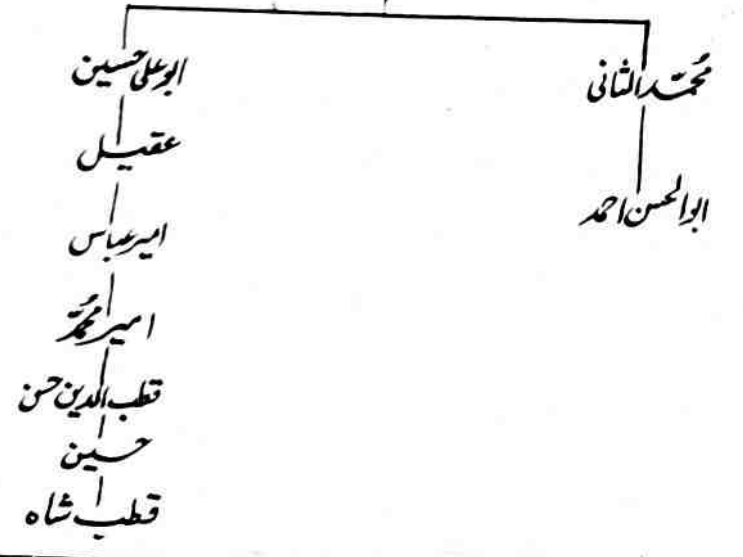 محمّد الثانی
ابوعلی حسین
عقیل
ابوالحسن احمد
امیر عباس
امیر محمّد
قطب الدین حسن
حسین
قطب شاہ